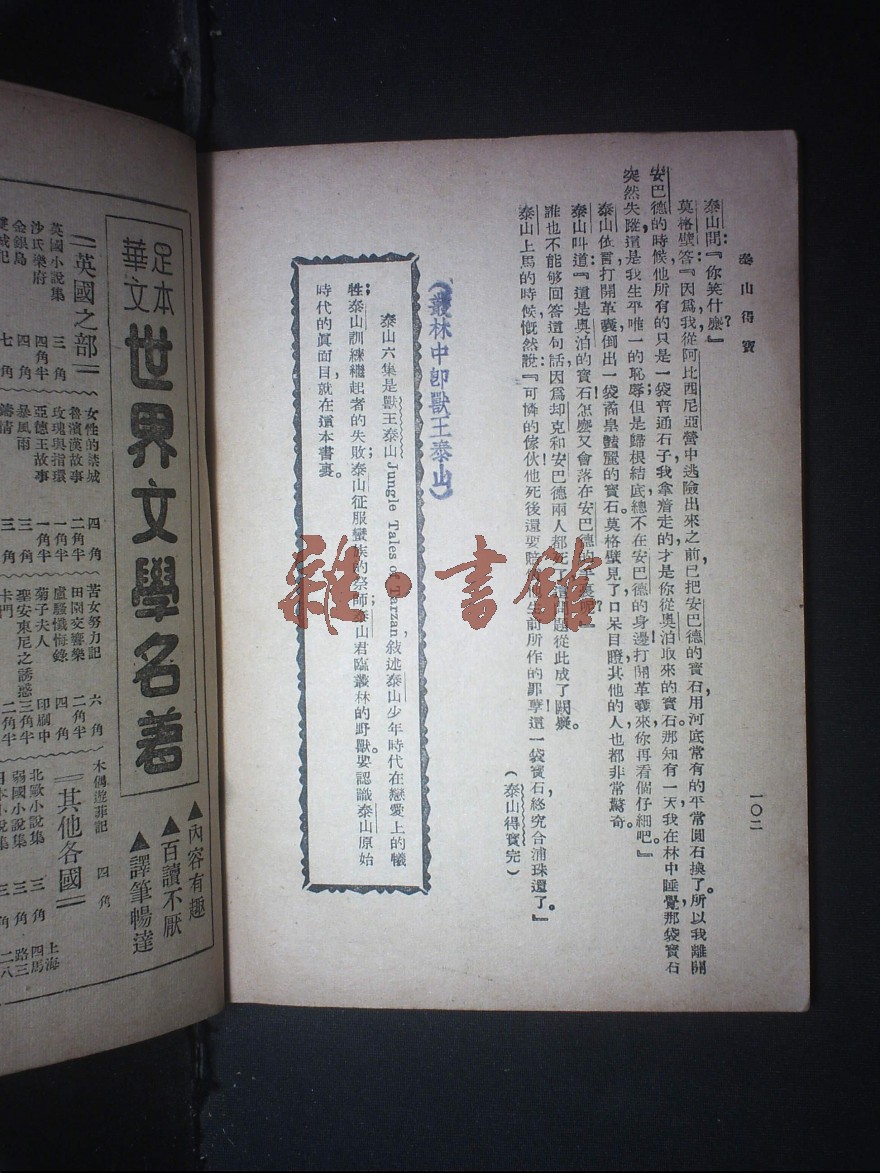 泰山得寶
一〇二
泰山問:『你笑什麽?』
莫格壁答:『因爲我從阿比西尼亞營中逃險出來之前,已把安巴德的寶石,用河底常有的平常圓石換了。所以我離開
安巴德的時候,他所有的只是一袋普通石子,我拿着走的才是你從奧泊取來的寶石。那知有一天,我在林中睡覺,那袋寶石
突然失蹤,這是我生平唯一的恥辱,但是歸根結底,總不在安巴德的身邊,打開革囊來,你再看個仔細吧。』
泰山依言打開革囊,倒出一袋裔皇豔麗的寶石。莫格壁見了,口呆目瞪,其他的人,也都非常驚奇。
泰山叫道:『這是奧泊的寶石!怎麽又會落在安巴德的手裏呢?』
誰也不能够回答這句話,因爲却克和安巴德兩人都死了,問題從此成了闕疑。
泰山上馬的時候,慨然說:『可憐的傢伙!他死後還要賠償他生前所作的罪孽!這一袋寶石,終究合浦珠還了。』
(泰山得寶完)
(叢林中卽獸王泰山)
泰山六集是獸王泰山Jungle Tales of Tarzan,敍述泰山少年時代在戀愛上的犧
牲;泰山訓練繼起者的失敗;泰山征服蠻族的祭師;泰山君臨叢林的野獸。要認識泰山原始
時代的眞面目,就在這本書裏。
足本
華文
世界文學名著
▲內容有趣
▲百讀不厭
▲譯筆暢達
英國之部
英國小說集 三角
沙氏樂府 四角半
金銀島 四角
雙城記 七角
女性的禁城 四角
魯濱漢故事 二角半
玫瑰與指環 一角半
亞德王故事 一角半
暴風雨 四角
三角
苦女努力記 六角
田園交響樂 二角半
盧騷懺悔錄 四角
菊子夫人 印刷中
聖安東尼之誘惑 三角半
卡門 二角半
木偶遊菲記 四角
其他各國
北歐小說集 三角
弱國小說集 三角
日本小說集 三角
上海
四馬
路三
二八